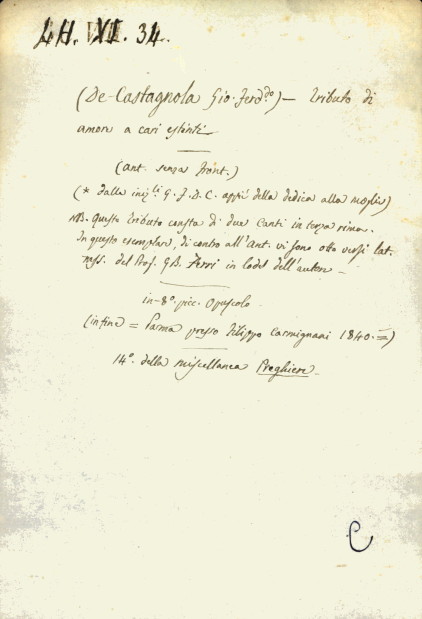 LH. VI. 34.
(De-Castagnola Gio. Ferd.do) — Tributo di
amore a cari estinti
(ant. senza front.)
(* dalle iniz.li G. F. D. C. appiè della dedica alla moglie)
NB. Questo Tributo consta di due Canti in terza rima.
In questo esemplare, di contro all'ant. vi sono otto versi lat.
mss. del Prof. G.B. Ferri in lode dell'autore —
in-8°. picc. Opuscolo.
(in fine = Parma presso Filippo Carmignani 1840. =)
14°. della miscellanea Preghiere.
C